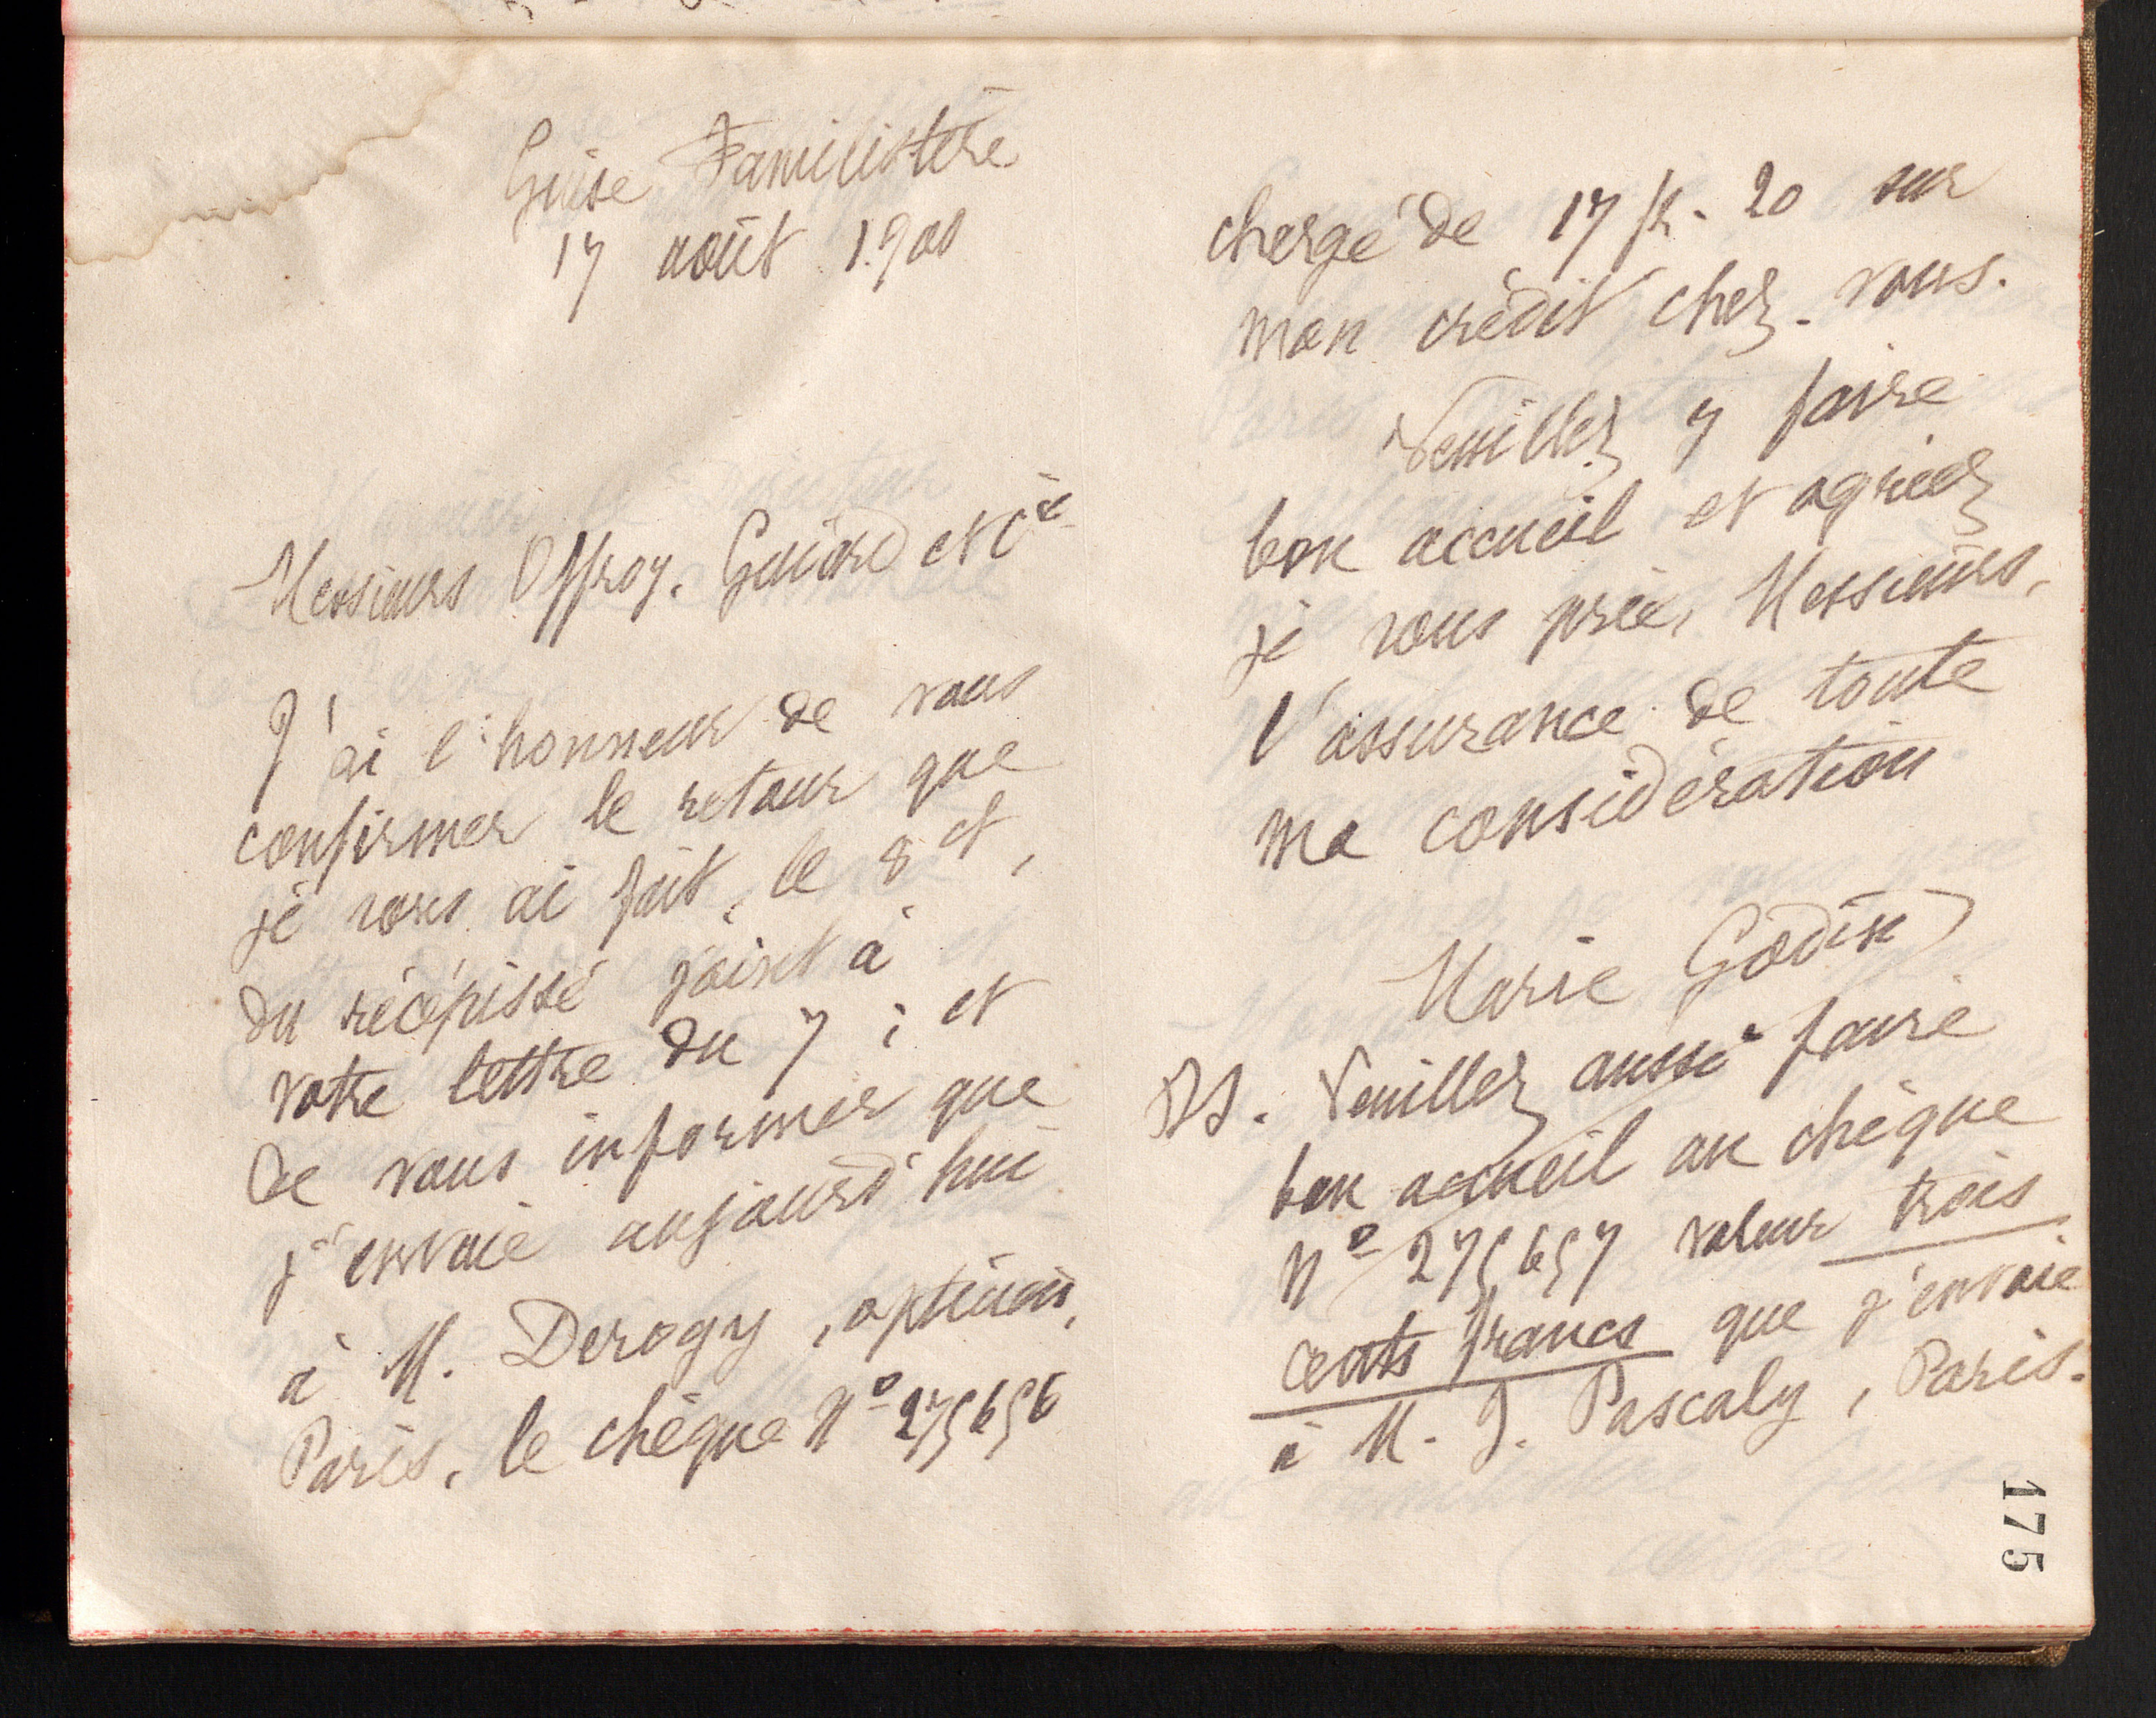 Guise Familistère
17 août 1900
Messieurs Offroy, Guiard et Cie
J'ai l'honneur de vous
confirmer le retour que
je vous ai fait, le 8 ct,
du récépissé joint à
votre lettre du 7 ; et
de vous informer que
j'envoie aujourd'hui
à M. Derogy, opticien,
Paris, le chèque No 275656
chargé de 17 fr. 20 sur
mon crédit chez vous.
Veuillez y faire
bon accueil et agréez
je vous prie, Messieurs,
l'assurance de toute
ma considération
Marie Godin
PS. Veuillez aussi faire
bon accueil au chèque
No 275657 valeur trois
cents francs que j'envoie
à M. J. Pascaly, Paris.
175